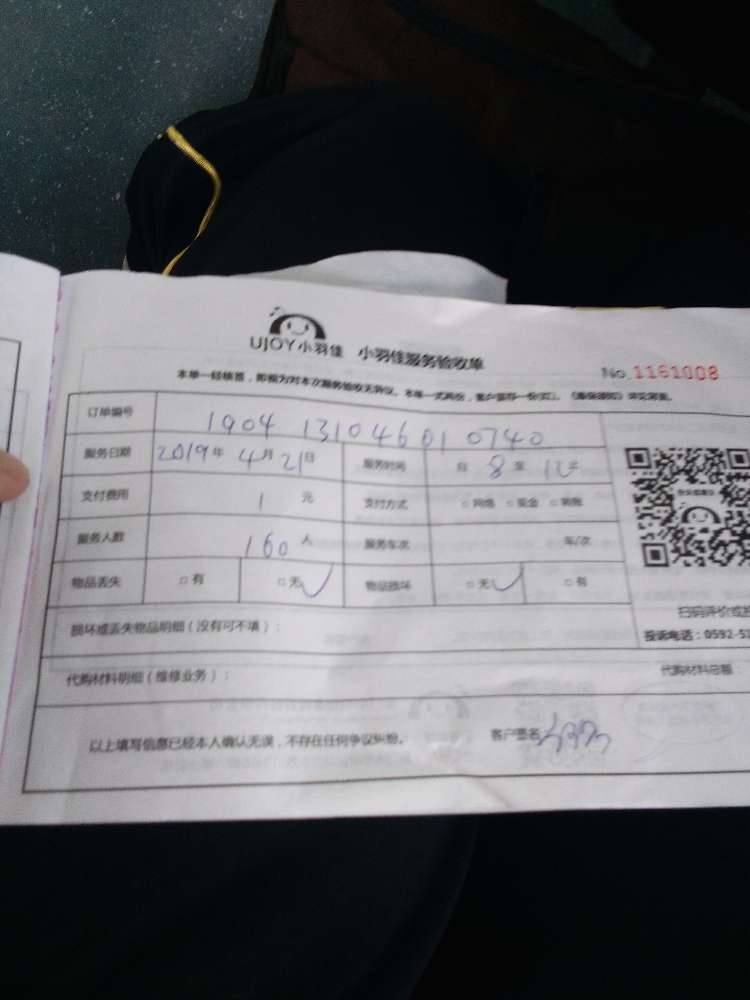 UJOY小羽佳 小羽佳服务验收单
No.1161008
本单一经核签，即视为对本次服务验收无异议。本单一式两份，客户留存一份(红)。《售保须知》详见背面。
订单编号 1904 131046010740
服务日期 2019年 4月 21日 服务时间 自 8 至 12
支付费用 1 元 支付方式 □网络 □现金 □转账
服务人数 160 人 服务车次 车/次
物品丢失 □有 □无✓ 物品损坏 □无✓ □有
损坏或丢失物品明细（没有可不填）：
扫码评价或投
投诉电话：0592-51
代购材料明细（维修业务）： 代购材料总额：
以上填写信息已经本人确认无误，不存在任何争议纠纷。 客户签名